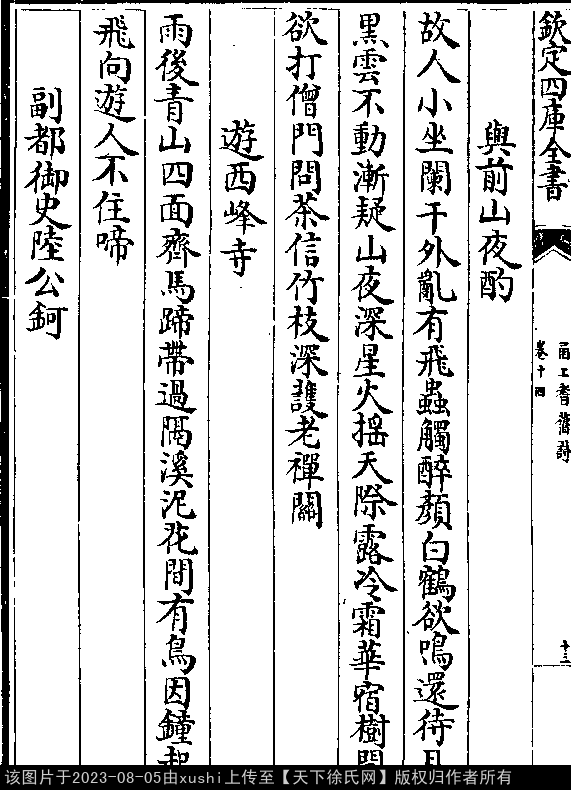 欽定四庫全書
卷十四
十三
與前山夜酌
故人小坐闌干外亂有飛蟲觸醉顏白鶴欲鳴還待月
黒雲不動漸疑山夜深星火揺天際露冷霜華宿樹間
欲打僧門問茶信竹枝深護老禪關
遊西峰寺
雨後青山四面齊馬蹄帶過隔溪泥花間有鳥因鐘起
飛向遊人不住啼
副都御史陸公鈳
该图片于2023-08-05由xushi上传至【天下徐氏网】版权归作者所有